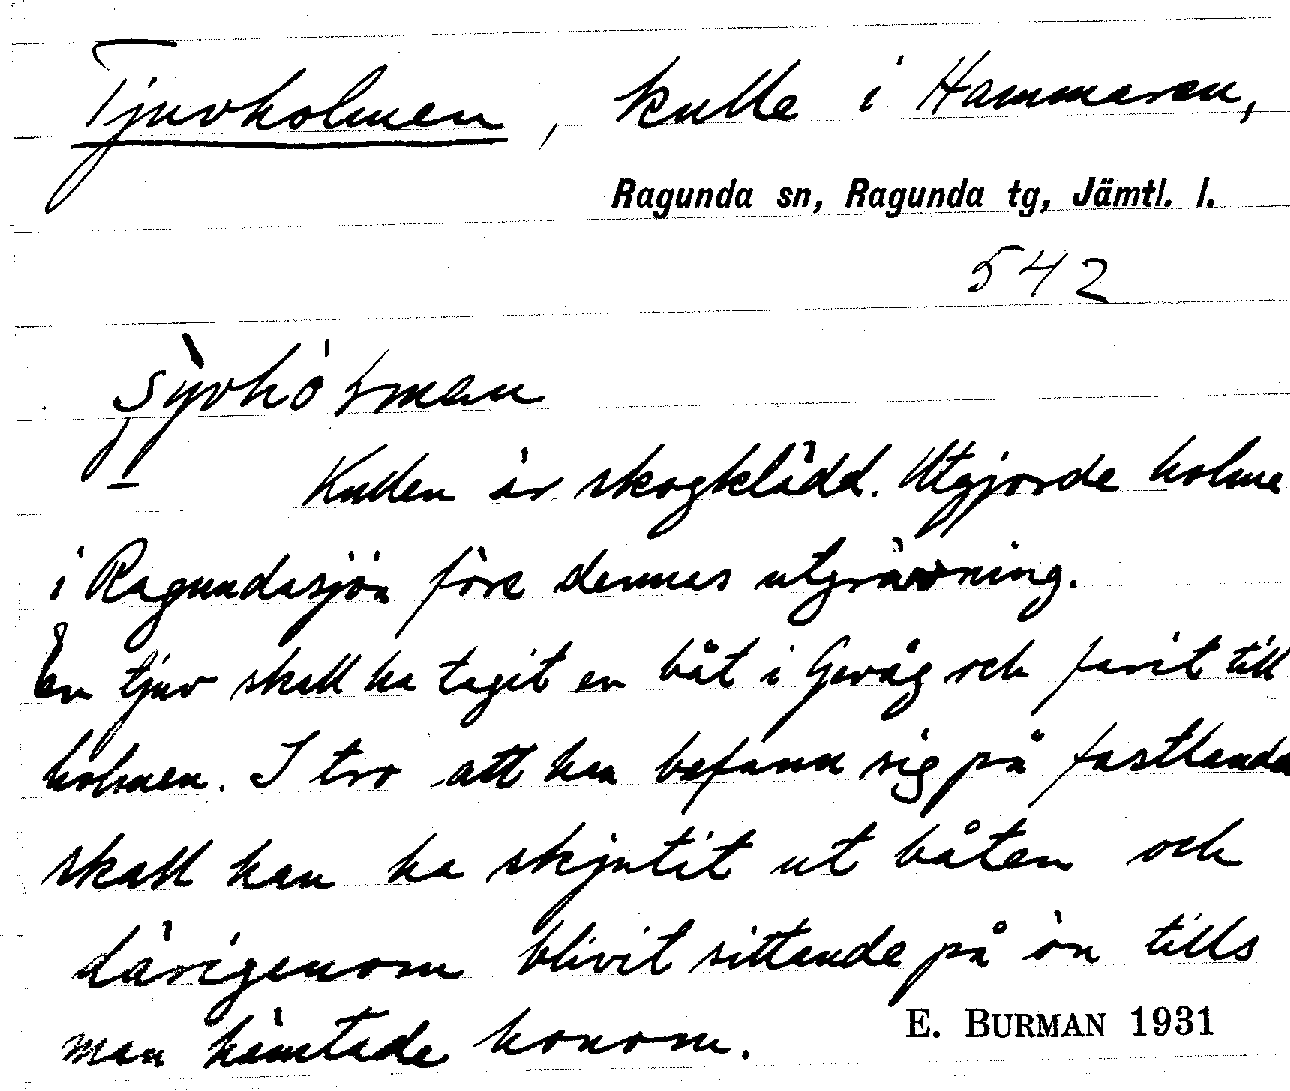 Tjuvholmen, kulle i Hammaren,
Ragunda sn, Ragunda tg, Jämtl. l.
542
Kullen är skogklädd. Utgjorde holme
i Ragundasjön före dennas utgrävning.
En tjuv skall ha tagit en båt i Gevåg och farit till
holmen. I tro att han befann sig på fastlande
skall han ha skjutit ut båten och
därigenom blivit sittande på ön tills
man hämtade honom.
E. BURMAN 1931